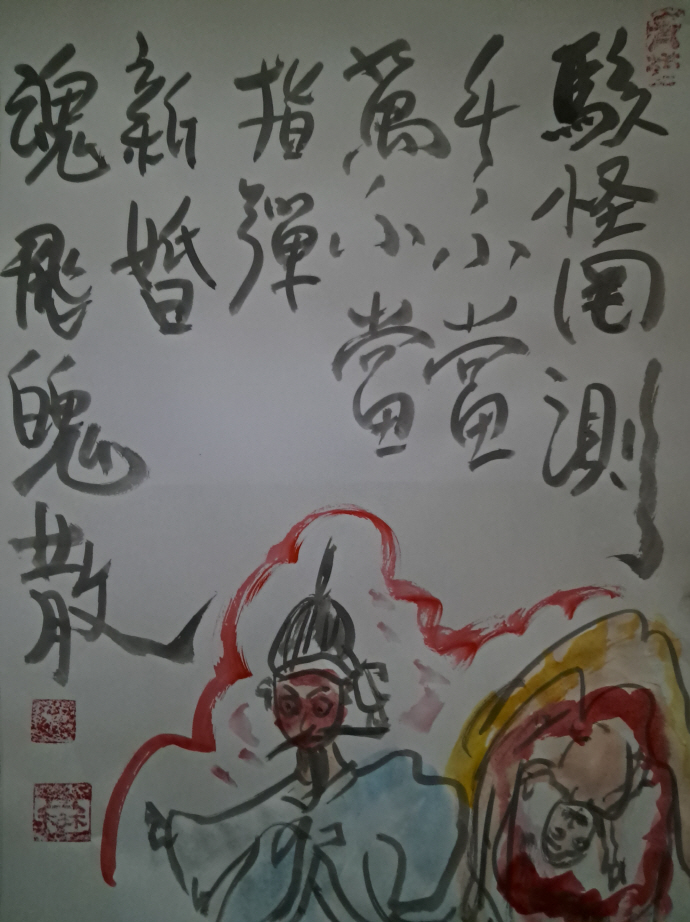 駭怪罔測
千不當
萬不當
指彈
新婚
魂飛魄散